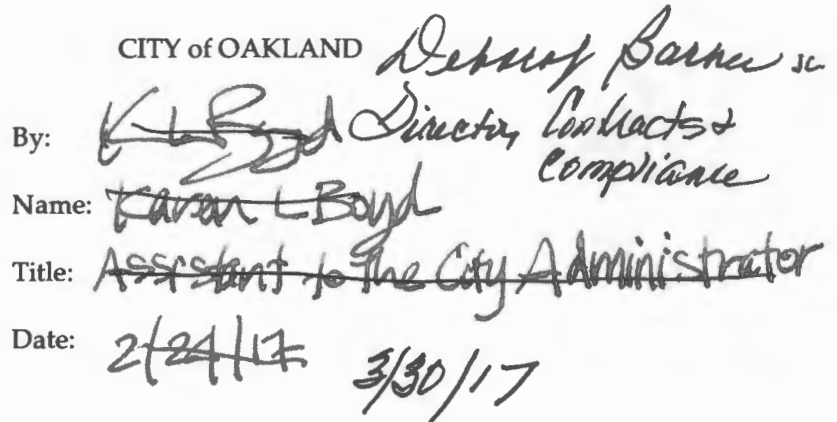 CITY of OAKLAND Deborah Barnes
By: K L Boyd Director, Contracts &
Compliance
Name: Karen L Boyd
Title: Assistant to the City Administrator
Date: 2/24/17 3/30/17